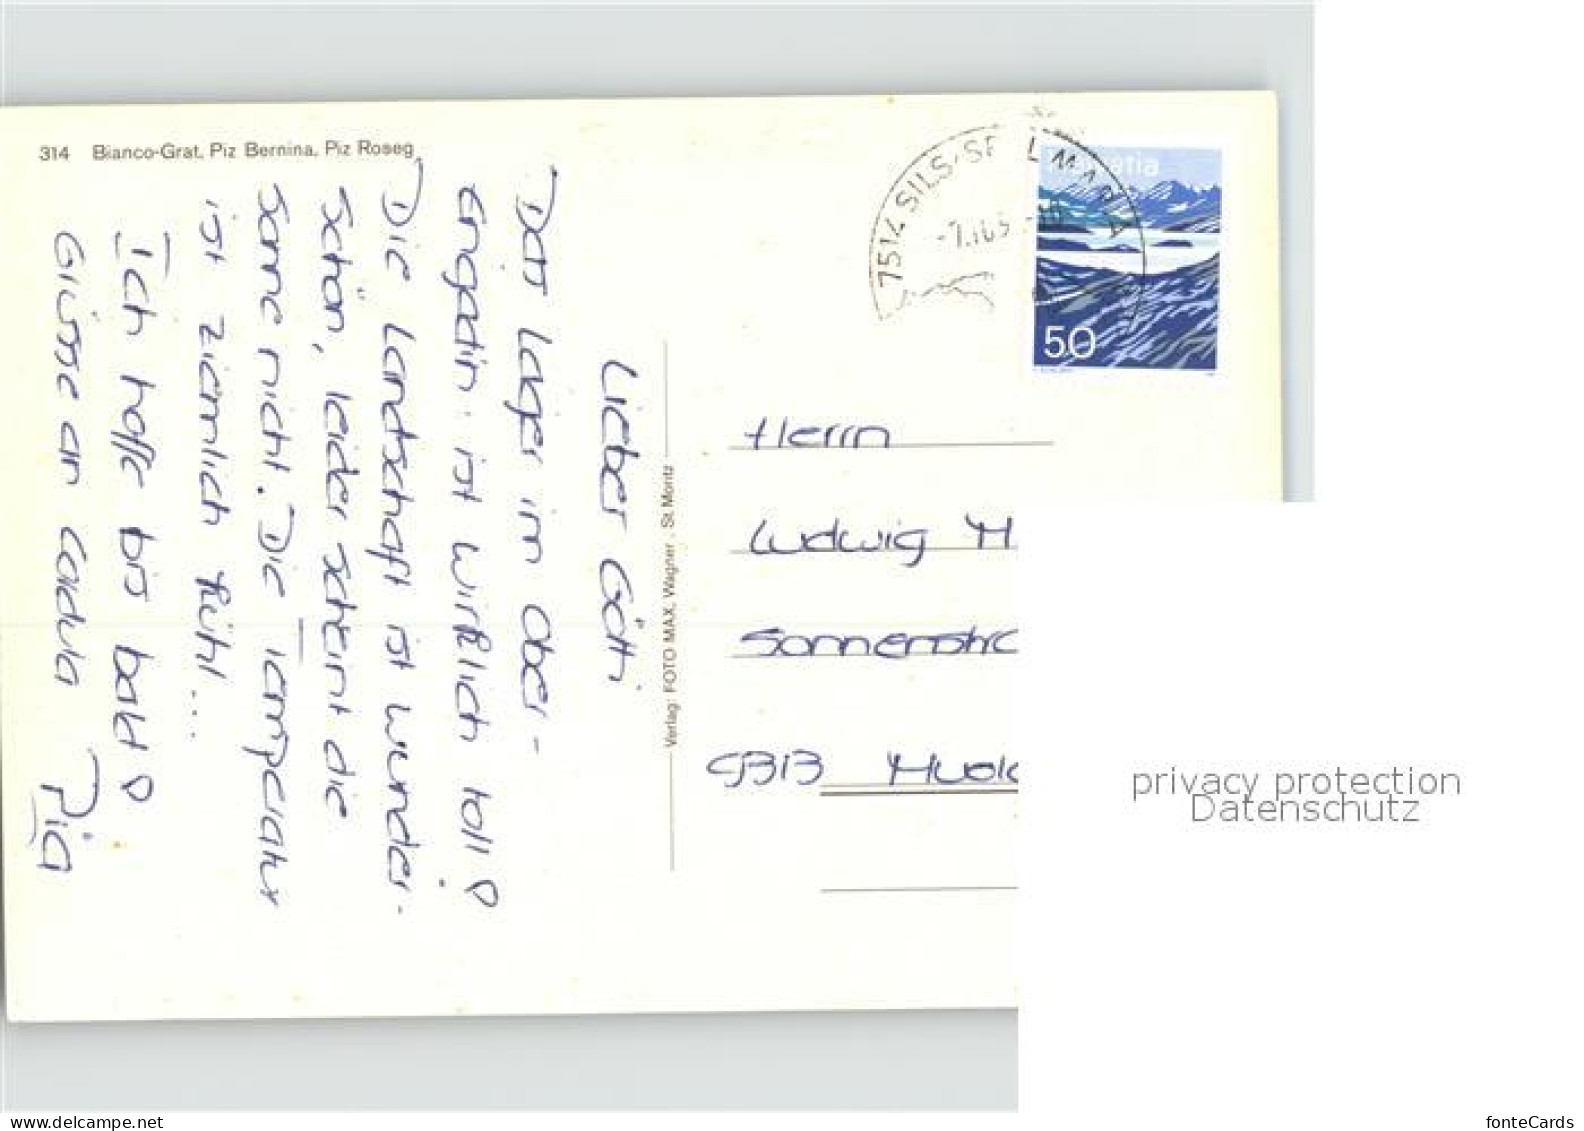 314 Bianco-Grat, Piz Bernina, Piz Roseg
Lieber Götti
Das Lager im Ober-
engadin ist wirklich toll!
Die Landschaft ist wunder-
schön, leider scheint die
Sonne nicht. Die Temperatur
ist ziemlich kühl...
Ich hoffe bis bald!
Grüsse an Coidula Pia
Verlag: FOTO MAX, Wagner, St. Moritz
7514 SILS-SE L MARIA
Helvetia
50
Herrn
Ludwig H
Sonnenstra
9313 Muol
privacy protection
Datenschutz
fonteCards